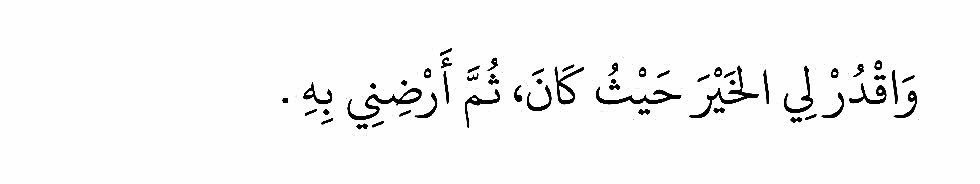 وَاقْدُرْ لِي الخَيْرَ حَيْثُ كَانَ، ثُمَّ أَرْضِنِي بِهِ .